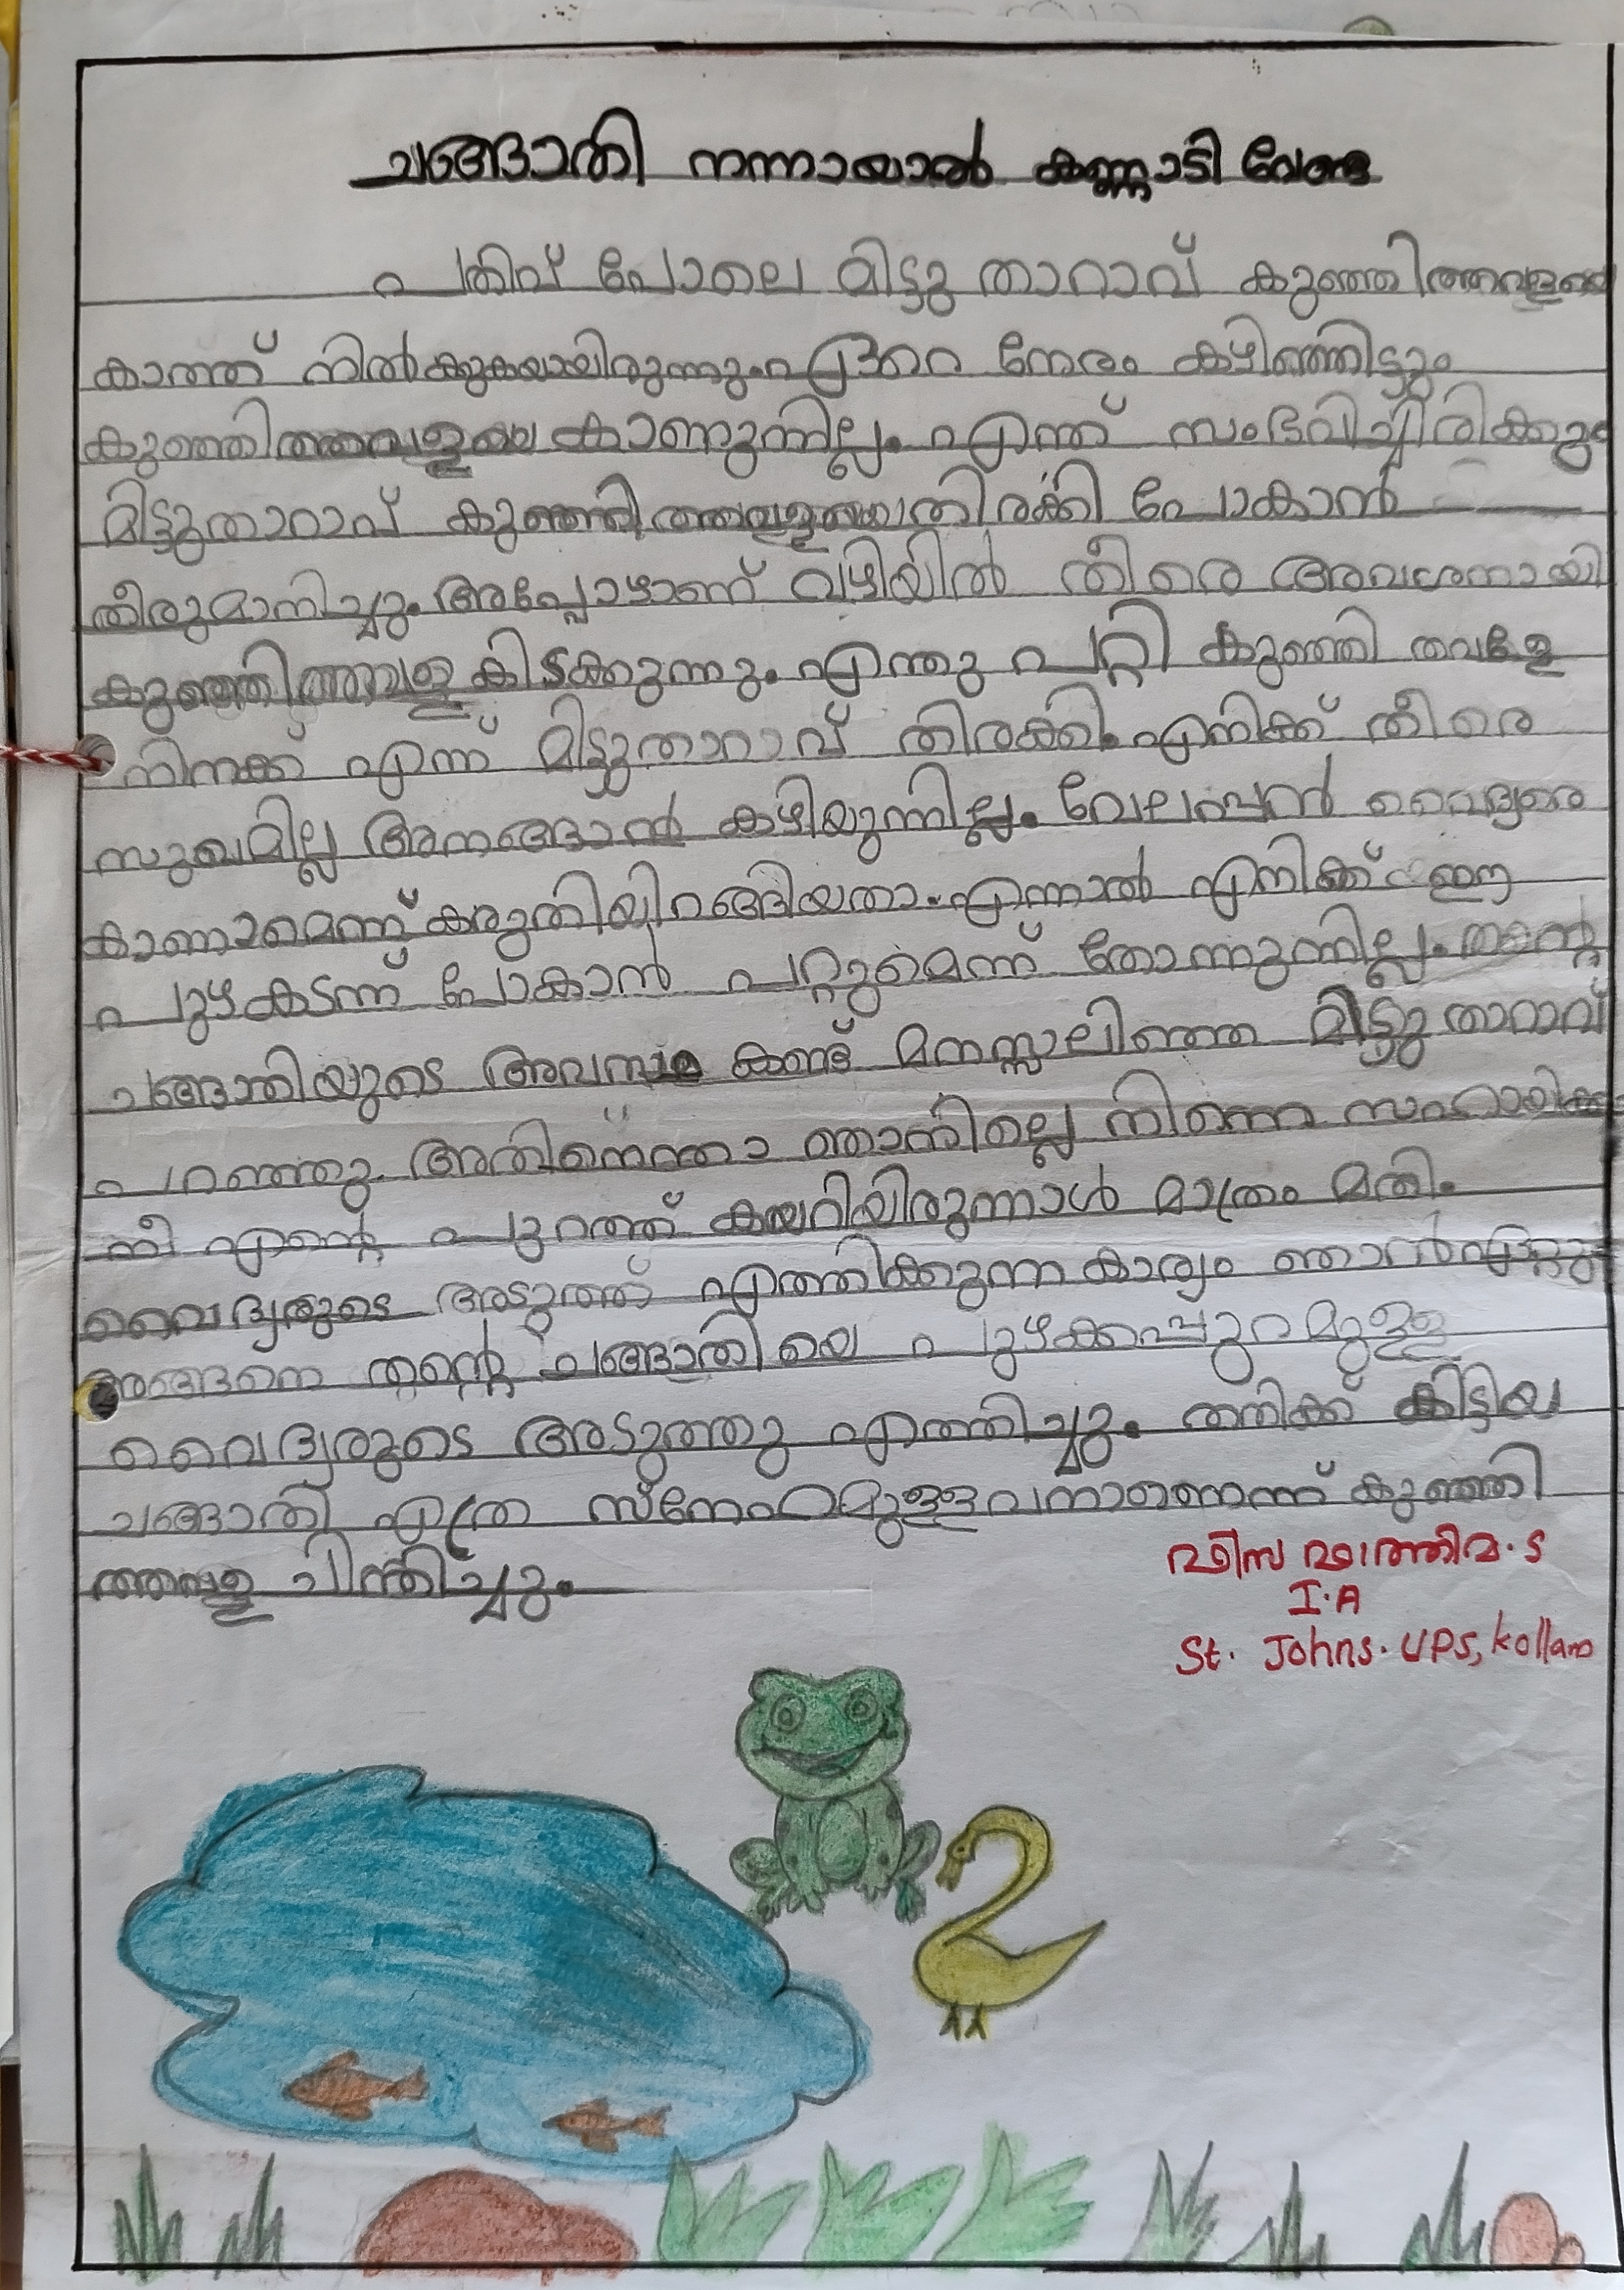 ചങ്ങാതി നന്നായാൽ കണ്ണാടി വേണ്ട
പതിവ് പോലെ മിട്ടു താറാവ് കുഞ്ഞിത്തവളയെ
കാത്ത് നിൽക്കുകയായിരുന്നും. ഏറെ നേരം കഴിഞ്ഞിട്ടും
കുഞ്ഞിത്തവളയെ കാണുന്നില്ല. എന്ത് സംഭവിച്ചിരിക്കും
മിട്ടുതാറാവ് കുഞ്ഞിത്തവളയെ തിരക്കി പോകാൻ
തീരുമാനിച്ചും. അപ്പോഴാണ് വഴിയിൽ തീരെ അവശനായി
കുഞ്ഞിത്തവള കിടക്കുന്നും. എന്തു പറ്റി കുഞ്ഞി തവളേ
നിനക്ക് എന്ന് മിട്ടുതാറാവ് തിരക്കി. എനിക്ക് തീരെ
സുഖമില്ല അനങ്ങാൻ കഴിയുന്നില്ല. വേലപ്പൻ വൈദ്യരെ
കാണാമെന്ന് കരുതിയിറങ്ങിയതാ. എന്നാൽ എനിക്ക് ഈ
പുഴകടന്ന് പോകാൻ പറ്റുമെന്ന് തോന്നുന്നില്ല. തന്റെ
ചങ്ങാതിയുടെ അവസ്ഥ കണ്ട് മനസ്സലിഞ്ഞ മിട്ടു താറാവ്
പറഞ്ഞു. അതിനെന്താ ഞാനില്ലെ നിന്നെ സഹായിക്കാ
നീ എന്റെ പുറത്ത് കയറിയിരുന്നാൾ മാത്രം മതി.
വൈദ്യരുടെ അടുത്ത് എത്തിക്കുന്ന കാര്യം ഞാൻ ഏറ്റു
അങ്ങനെ തന്റെ ചങ്ങാതിയെ പുഴക്കപ്പുറമുള്ള
വൈദ്യരുടെ അടുത്തു എത്തിച്ചും. തനിക്ക് കിട്ടിയ
ചങ്ങാതി എത്ര സ്നേഹമുള്ളവനാണെന്ന് കുഞ്ഞി
ത്തവള ചിന്തിച്ചും.
ഫിസ ഫാത്തിമ. S
I.A
St. Johns. UPS, kollam